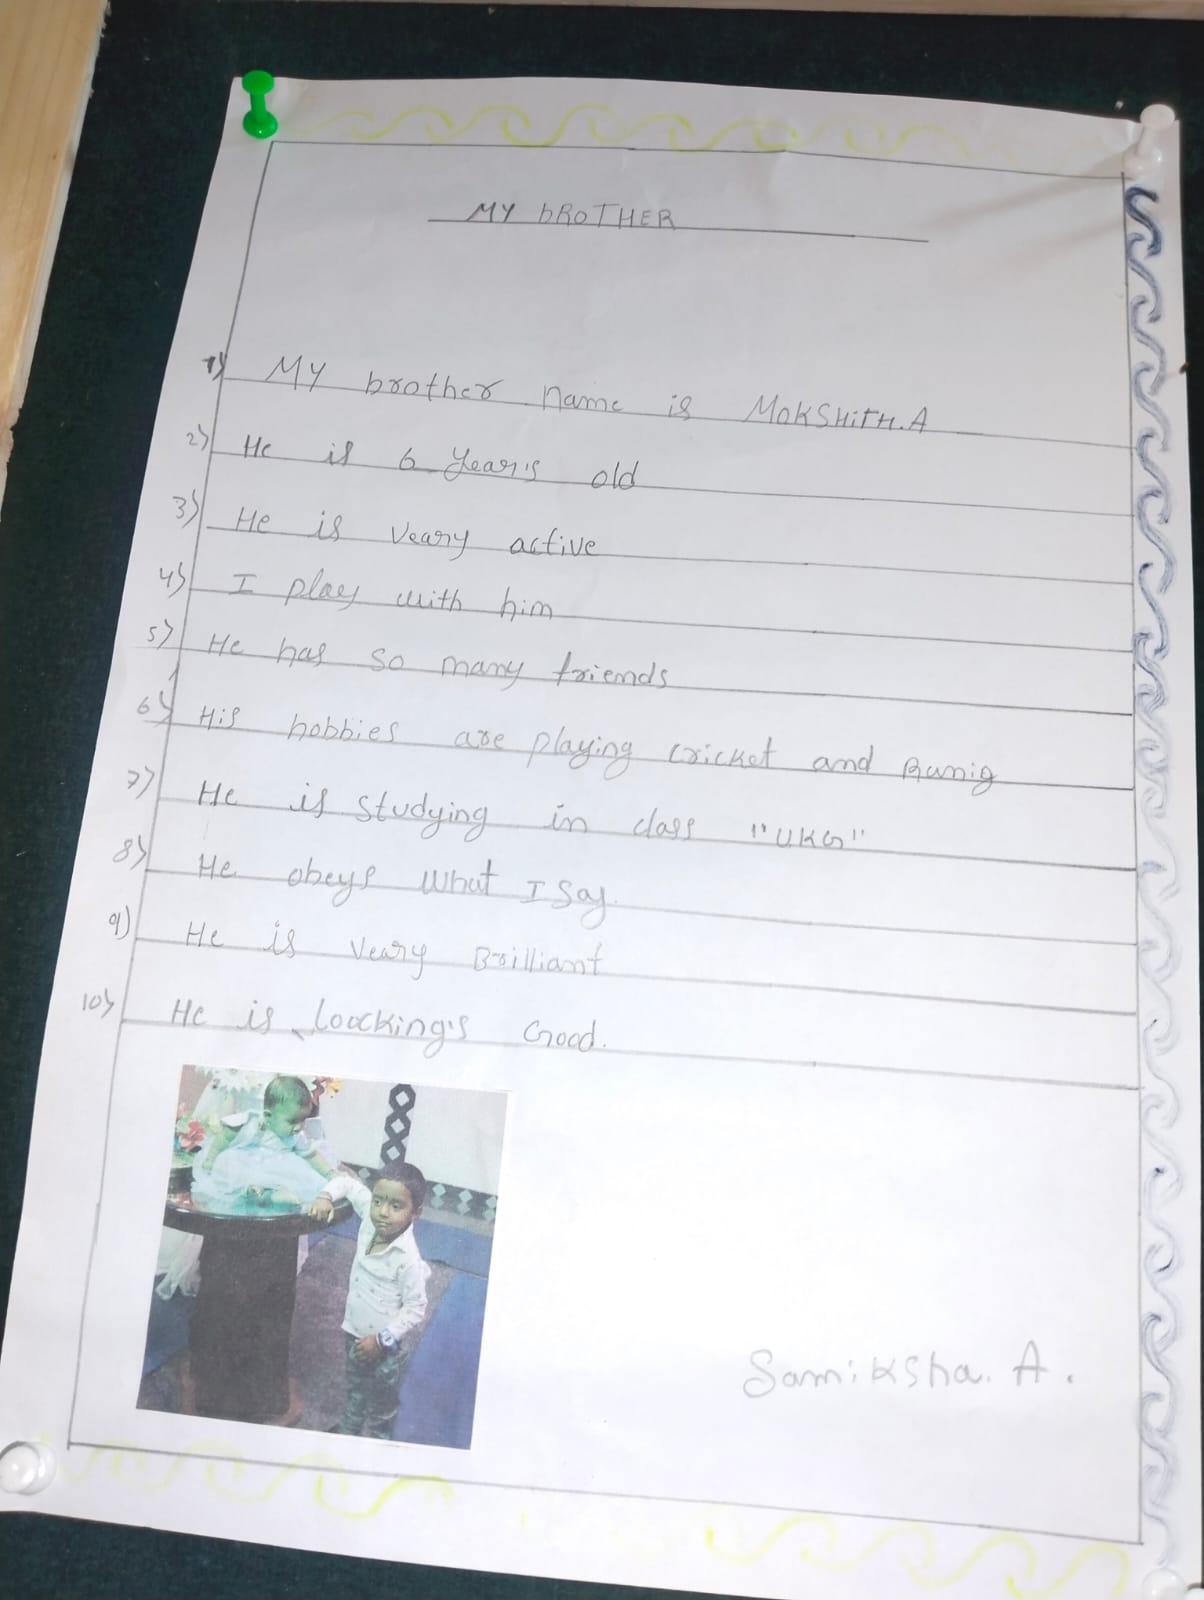 MY bROTHER
1) MY brother name is MOKSHITH.A
2) He is 6 Year's old
3) He is Veary active
4) I play with him
5) He has so many friends
6) His hobbies are playing cricket and Runig
7) He is studying in class "UKG"
8) He obeys what I Say.
9) He is veary Brilliant
10) He is loocking's Good.
Samiksha. A.